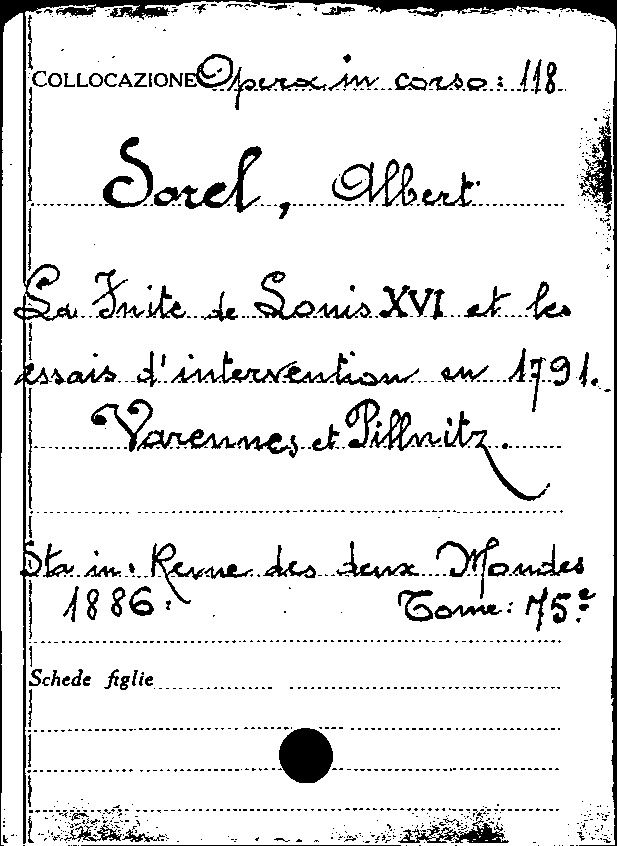 COLLOCAZIONE Opera in corso: 118
Sorel, Albert
La Fuite de Louis XVI et les
essais d'intervention en 1791.
Varennes et Pillnitz.
Sta in: Revue des deux Mondes
1886. Tome: 75.e
Schede figlie